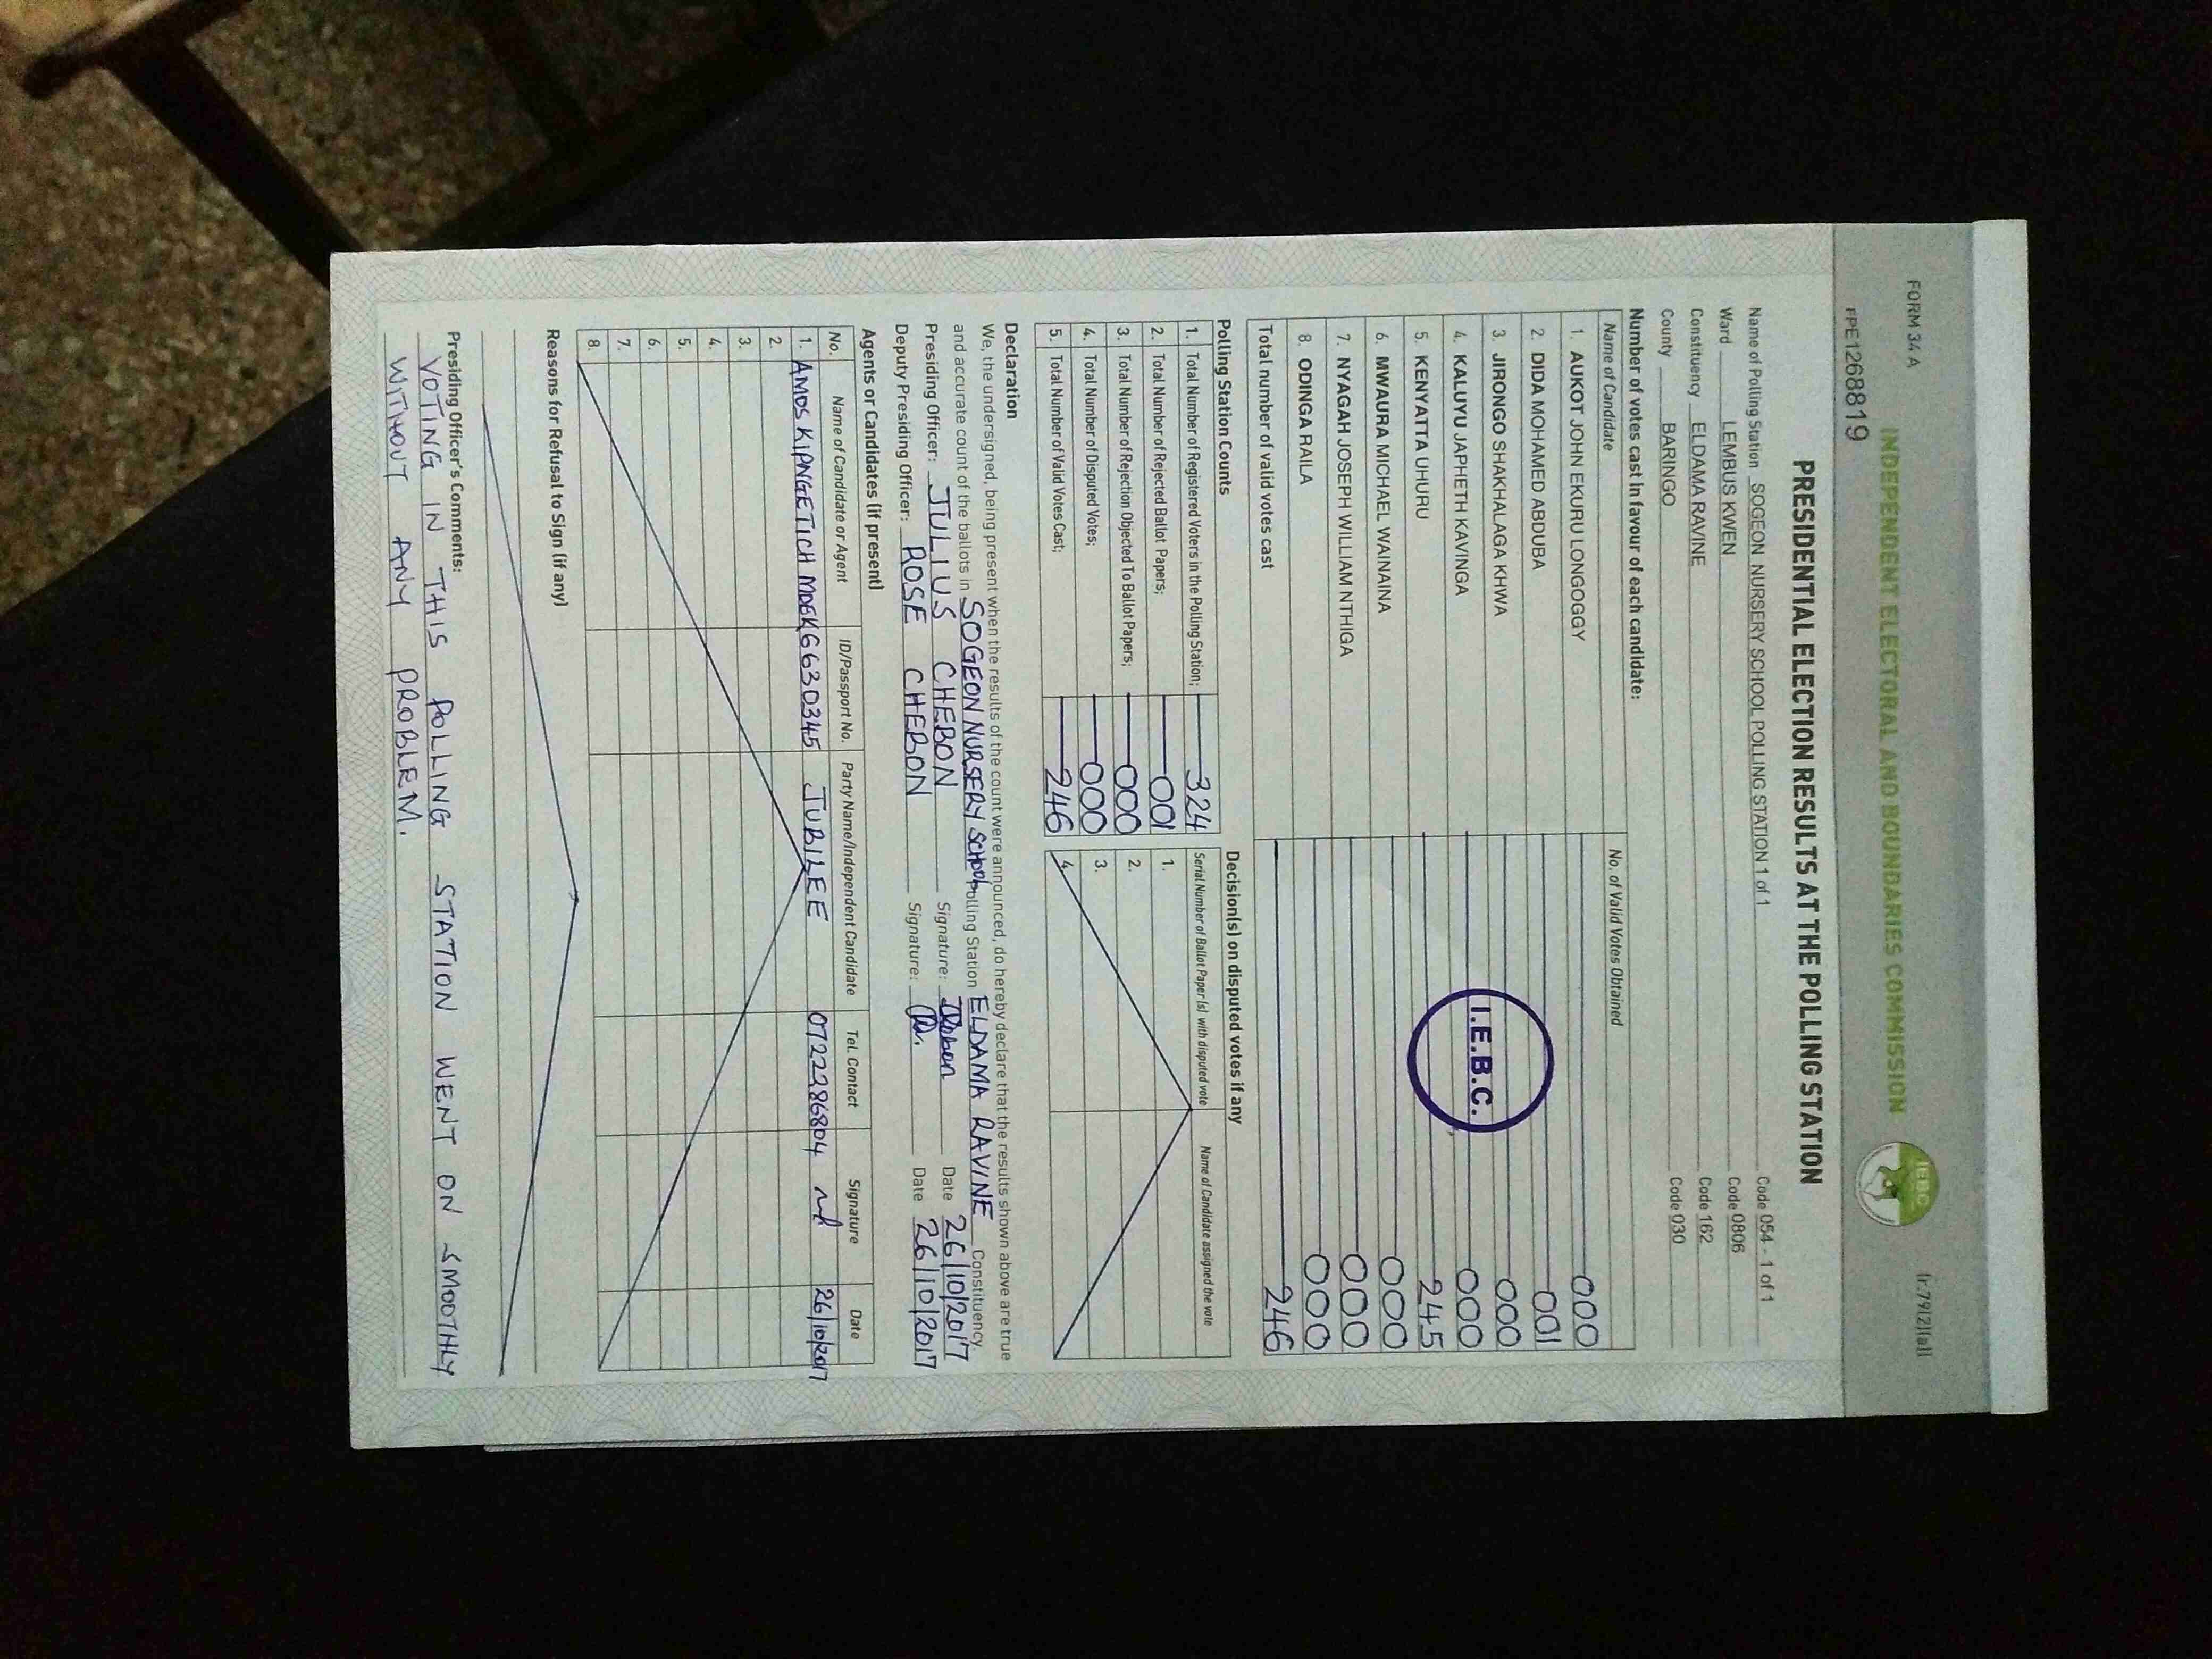 FORM 34 A
(r.79(2)(a))
INDEPENDENT ELECTORAL AND BOUNDARIES COMMISSION
IEBC
PE1268819
PRESIDENTIAL ELECTION RESULTS AT THE POLLING STATION
Name of Polling Station SOGEON NURSERY SCHOOL POLLING STATION 1 of 1 Code 054 - 1 of 1
Ward LEMBUS KWEN Code 0806
Constituency ELDAMA RAVINE Code 162
County BARINGO Code 030
Number of votes cast in favour of each candidate:
Name of Candidate No. of Valid Votes Obtained
1. AUKOT JOHN EKURU LONGOGGY 000
2. DIDA MOHAMED ABDUBA 001
3. JIRONGO SHAKHALAGA KHWA 000
4. KALUYU JAPHETH KAVINGA 000
5. KENYATTA UHURU 245
6. MWAURA MICHAEL WAINAINA 000
7. NYAGAH JOSEPH WILLIAM NTHIGA 000
8. ODINGA RAILA 000
Total number of valid votes cast 246
I.E.B.C.
Polling Station Counts
1. Total Number of Registered Voters in the Polling Station; 324
2. Total Number of Rejected Ballot Papers; 001
3. Total Number of Rejection Objected To Ballot Papers; 000
4. Total Number of Disputed Votes; 000
5. Total Number of Valid Votes Cast; 246
Decision(s) on disputed votes if any
Serial Number of Ballot Paper (s) with disputed vote Name of Candidate assigned the vote
1.
2.
3.
4.
Declaration
We, the undersigned, being present when the results of the count were announced, do hereby declare that the results shown above are true
and accurate count of the ballots in SOGEON NURSERY SCHOOL Polling Station ELDAMA RAVINE Constituency.
Presiding Officer: JULIUS CHEBON Signature: Date 26/10/2017
Deputy Presiding Officer: ROSE CHEBON Signature: Date 26/10/2017
Agents or Candidates (if present)
No. Name of Candidate or Agent ID/Passport No. Party Name/Independent Candidate Tel. Contact Signature Date
1. AMOS KIPNGETICH 6630345 JUBILEE 0722286804 26/10/2017
2.
3.
4.
5.
6.
7.
8.
Reasons for Refusal to Sign (if any)
Presiding Officer's Comments:
VOTING IN THIS POLLING STATION WENT ON SMOOTHLY
WITHOUT ANY PROBLEM.